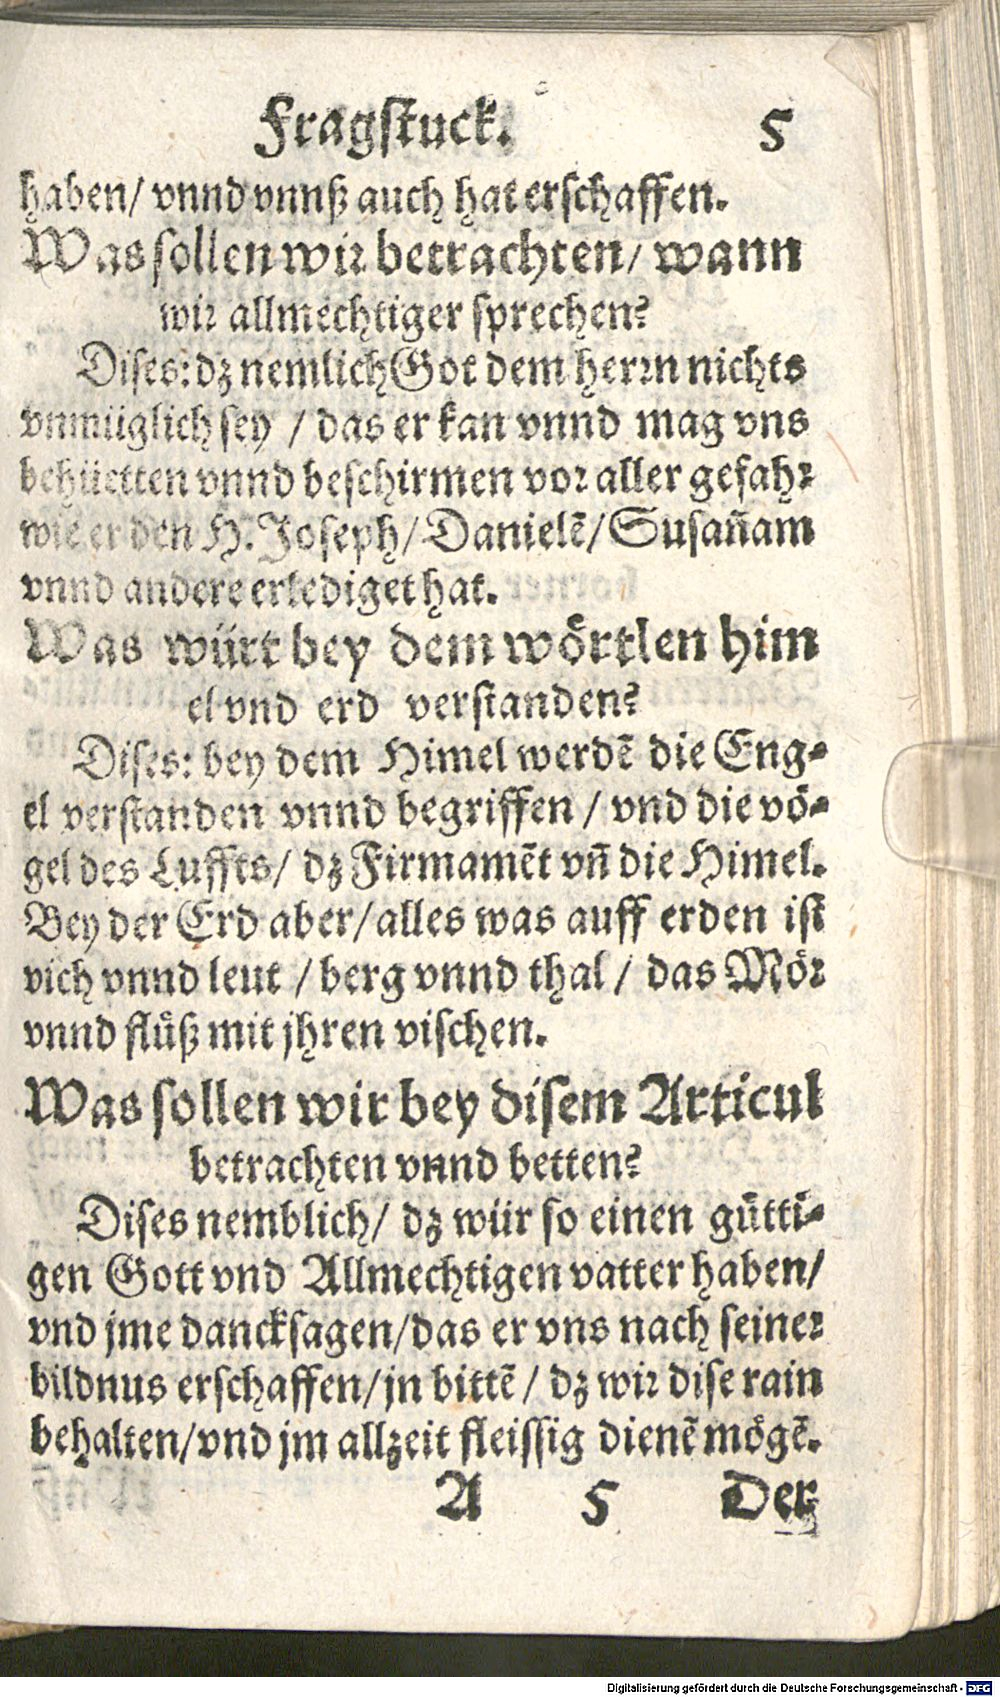 Fragstuck. 5
haben/ vnnd vnnß auch hat erschaffen.
Was sollen wir betrachten/ wann
wir allmechtiger sprechen?
Dises: dz nemlich Got dem herrn nichts
vnmüglich sey / das er kan vnnd mag vns
behüetten vnnd beschirmen vor aller gefahr
wie er den H. Joseph/ Danielē/ Susan̄am
vnnd andere erlediget hat.
Was würt bey dem wörtlen him
el vnd erd verstanden?
Dises: bey dem Himel werdē die Eng-
el verstanden vnnd begriffen / vnd die vö-
gel des Luffts/ dz Firmamēt vn̄ die Himel.
Bey der Erd aber/ alles was auff erden ist
vich vnnd leut / berg vnnd thal / das Mör
vnnd flüß mit jhren vischen.
Was sollen wir bey disem Articul
betrachten vnnd betten?
Dises nemblich/ dz wür so einen gütti-
gen Gott vnd Allmechtigen vatter haben/
vnd jme dancksagen/ das er vns nach seiner
bildnus erschaffen/ jn bittē / dz wir dise rain
behalten/ vnd jm allzeit fleissig dienē mögē.
A 5 Der
Digitalisierung gefördert durch die Deutsche Forschungsgemeinschaft - DFG